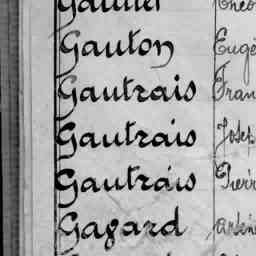 Gauton Eugè
Gautrais Fran
Gautrais Josep
Gautrais Pierr
Gavard